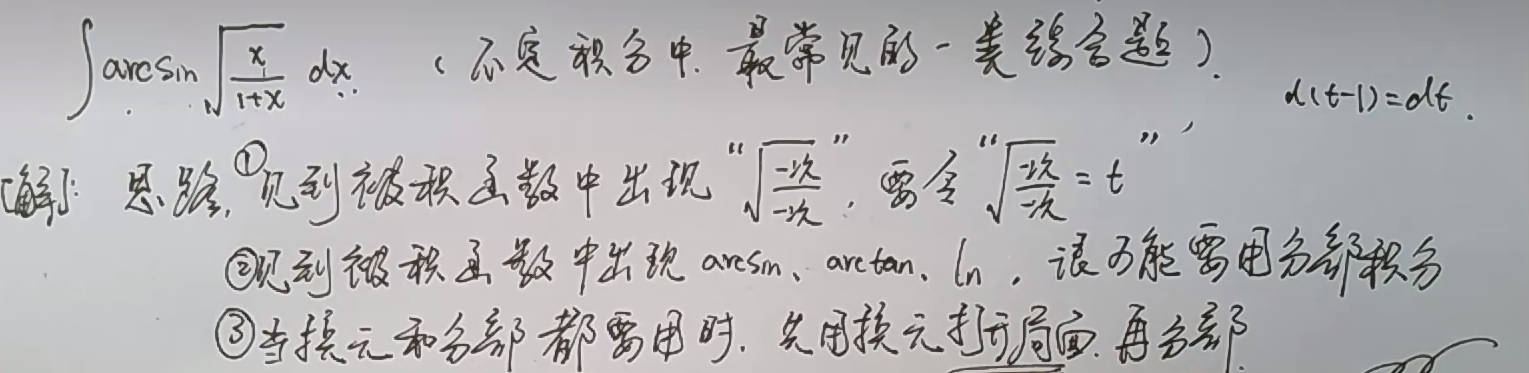 ∫arcsin√(x/(1+x)) dx （不定积分中.最常见的一类综合题）.
d(t-1)=dt.
[解]: 思路,①见到被积函数中出现“√(一次/一次)”,要令“√(一次/一次)=t”,
②见到被积函数中出现arcsin、arctan、ln,很可能要用分部积分
③当换元和分部都要用时.先用换元打开局面.再分部.